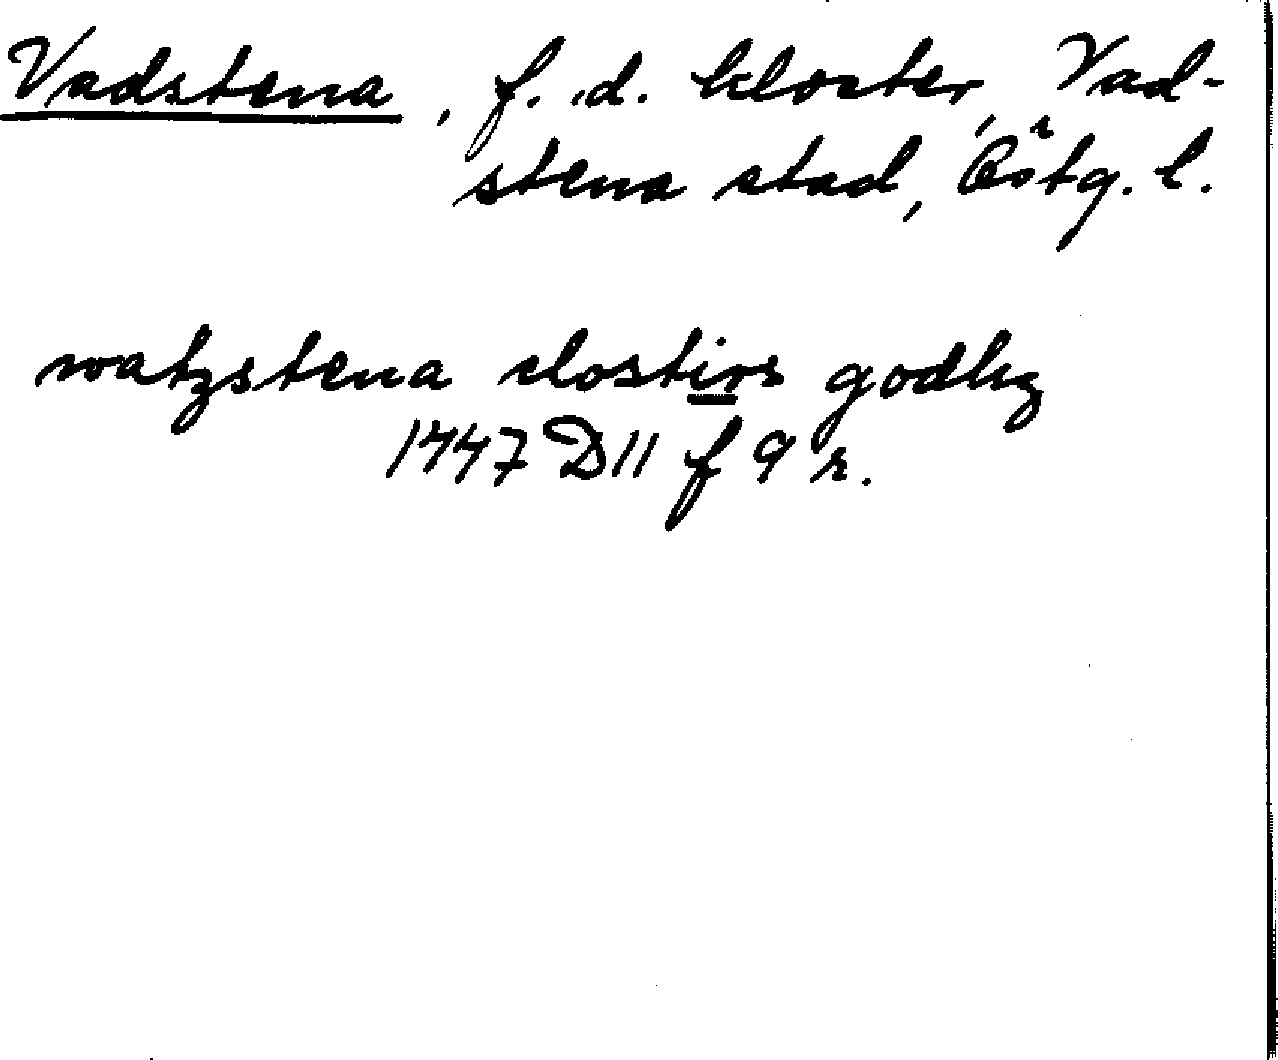 Vadstena, f. d. kloster, Vad-
stena stad, Östg. l.
watzstena clostirs godhz
1447 D 11 f 9 r.